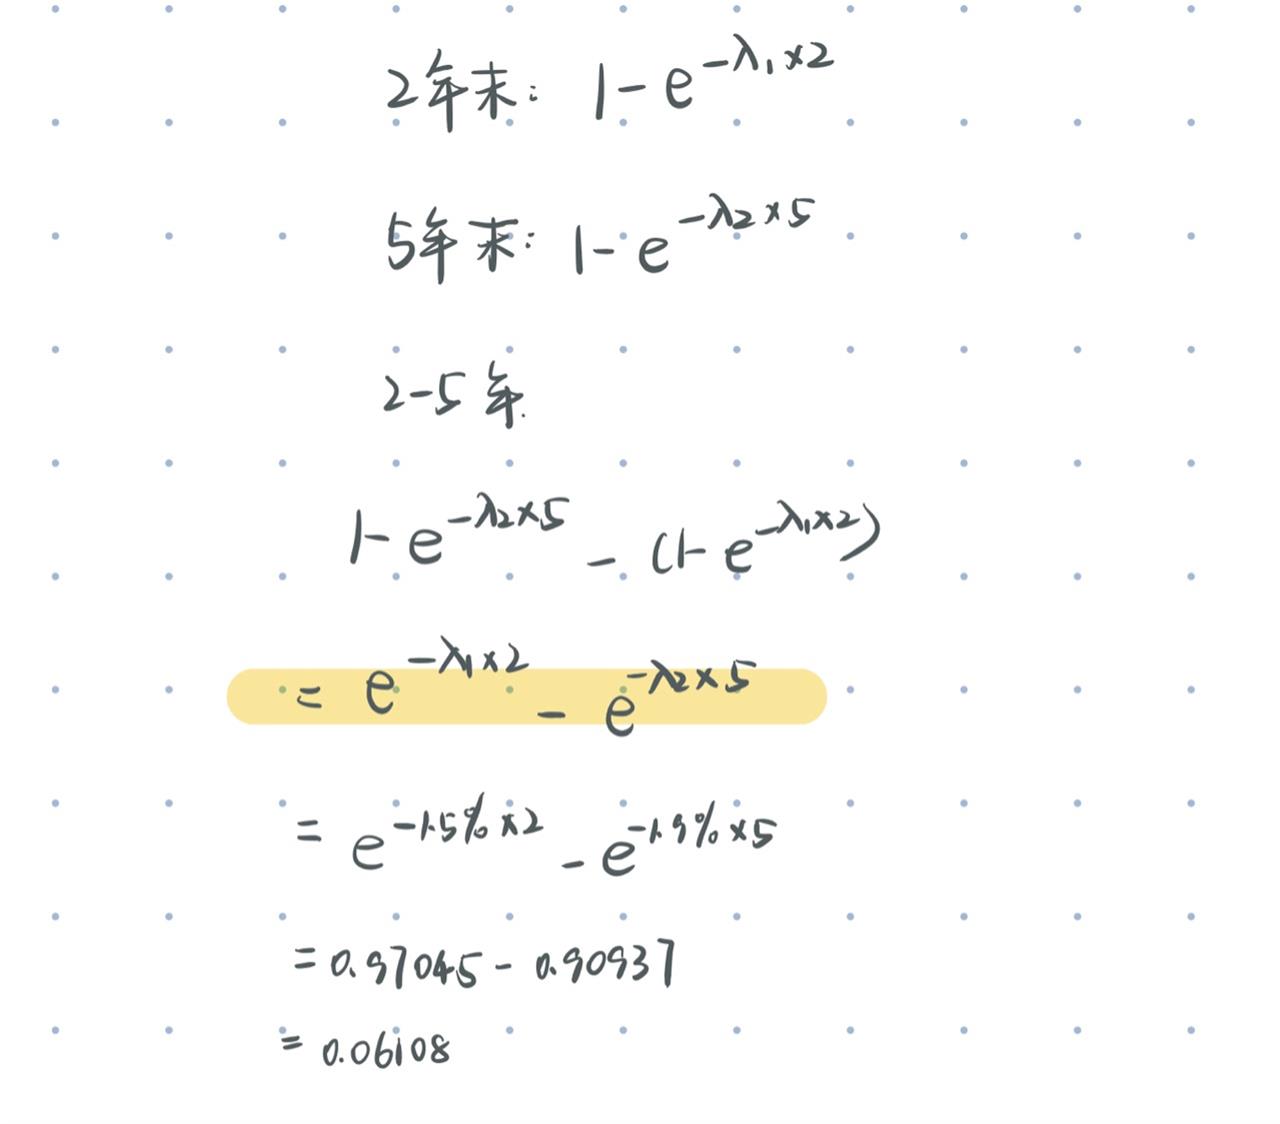 2年末: 1-e^{-λ₁×2}
5年末: 1-e^{-λ₂×5}
2-5年.
1-e^{-λ₂×5} - (1-e^{-λ₁×2})
= e^{-λ₁×2} - e^{-λ₂×5}
= e^{-1.5%×2} - e^{-1.9%×5}
= 0.97045 - 0.90937
= 0.06108